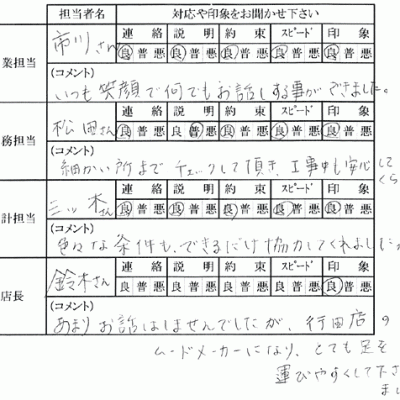 担当者名 対応や印象をお聞かせ下さい
業担当 市川さん 連絡 説明 約束 スピード 印象
良普悪 良普悪 良普悪 良普悪 良普悪
(コメント)
いつも笑顔で何でもお話しする事ができました。
務担当 松田さん 連絡 説明 約束 スピード 印象
良普悪 良普悪 良普悪 良普悪 良普悪
(コメント)
細かい所までチェックして頂き、工事中も安心して
くら
計担当 三ッ木さん 連絡 説明 約束 スピード 印象
良普悪 良普悪 良普悪 良普悪 良普悪
(コメント)
色々な条件も、できるだけ協力してくれました
店長 鈴木さん 連絡 説明 約束 スピード 印象
良普悪 良普悪 良普悪 良普悪 良普悪
(コメント)
あまりお話はしませんでしたが、行田店の
ムードメーカーになり、とても足を
運びやすくして下さ
まし